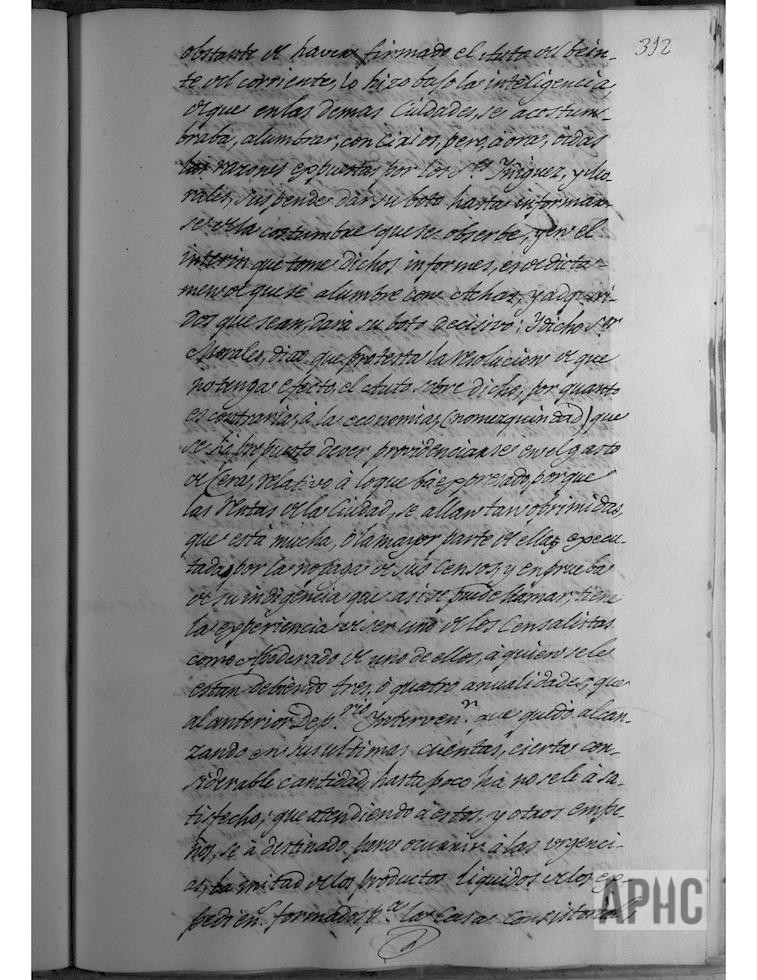 392
obstante de haver firmado el Auto del bein-
te del corriente, lo hizo bajo la inteligencia,
de que en las demas Ciudades, se acostum-
braba, alumbrar, con Cirios, pero, aora, oidas
las razones expuestas por los S.res Iñiguez, y Mo-
rales, suspende dar su boto hasta informar-
se de la costumbre que se observe, y en el
interin que tome dichos informes, es de dicta-
men de que se alumbre con Achas, y adquiri-
dos que sean, dará su boto decisivo; Y dicho S.or
Morales, dixo, que protesta la resolucion de que
no tenga efecto, el Auto sobre dicho, por quanto
es contraria, à la economia, (no mezquindad) que
se há propuesto dever providenciarse en el gasto
de Cera, relativo à lo que bá expresado, porque
las Rentas de la Ciudad, se allan tan oprimidas,
que está mucha, ò la mayor parte de ellas execu-
tada, por la no paga de sus Censos, y en prueba
de su indigencia que asi se puede llamar, tiene
la experiencia de ser uno de los Censalistas
como Apoderado de uno de ellos, à quien se le
estan debiendo tres, ò quatro anualidades, que
al anterior Dep.rio Interven.n que quedó alcan-
zando en sus ultimas cuentas, cierta con-
siderable cantidad, hasta poco há no se le à sa-
tisfecho; que atendiendo à estos, y otros empe-
ños, se à destinado para ocurrir à las urgenci-
as, la mitad de los productos liquidos de los, ex-
pedien.s formados p.a las Casas Consistoriales
APHC